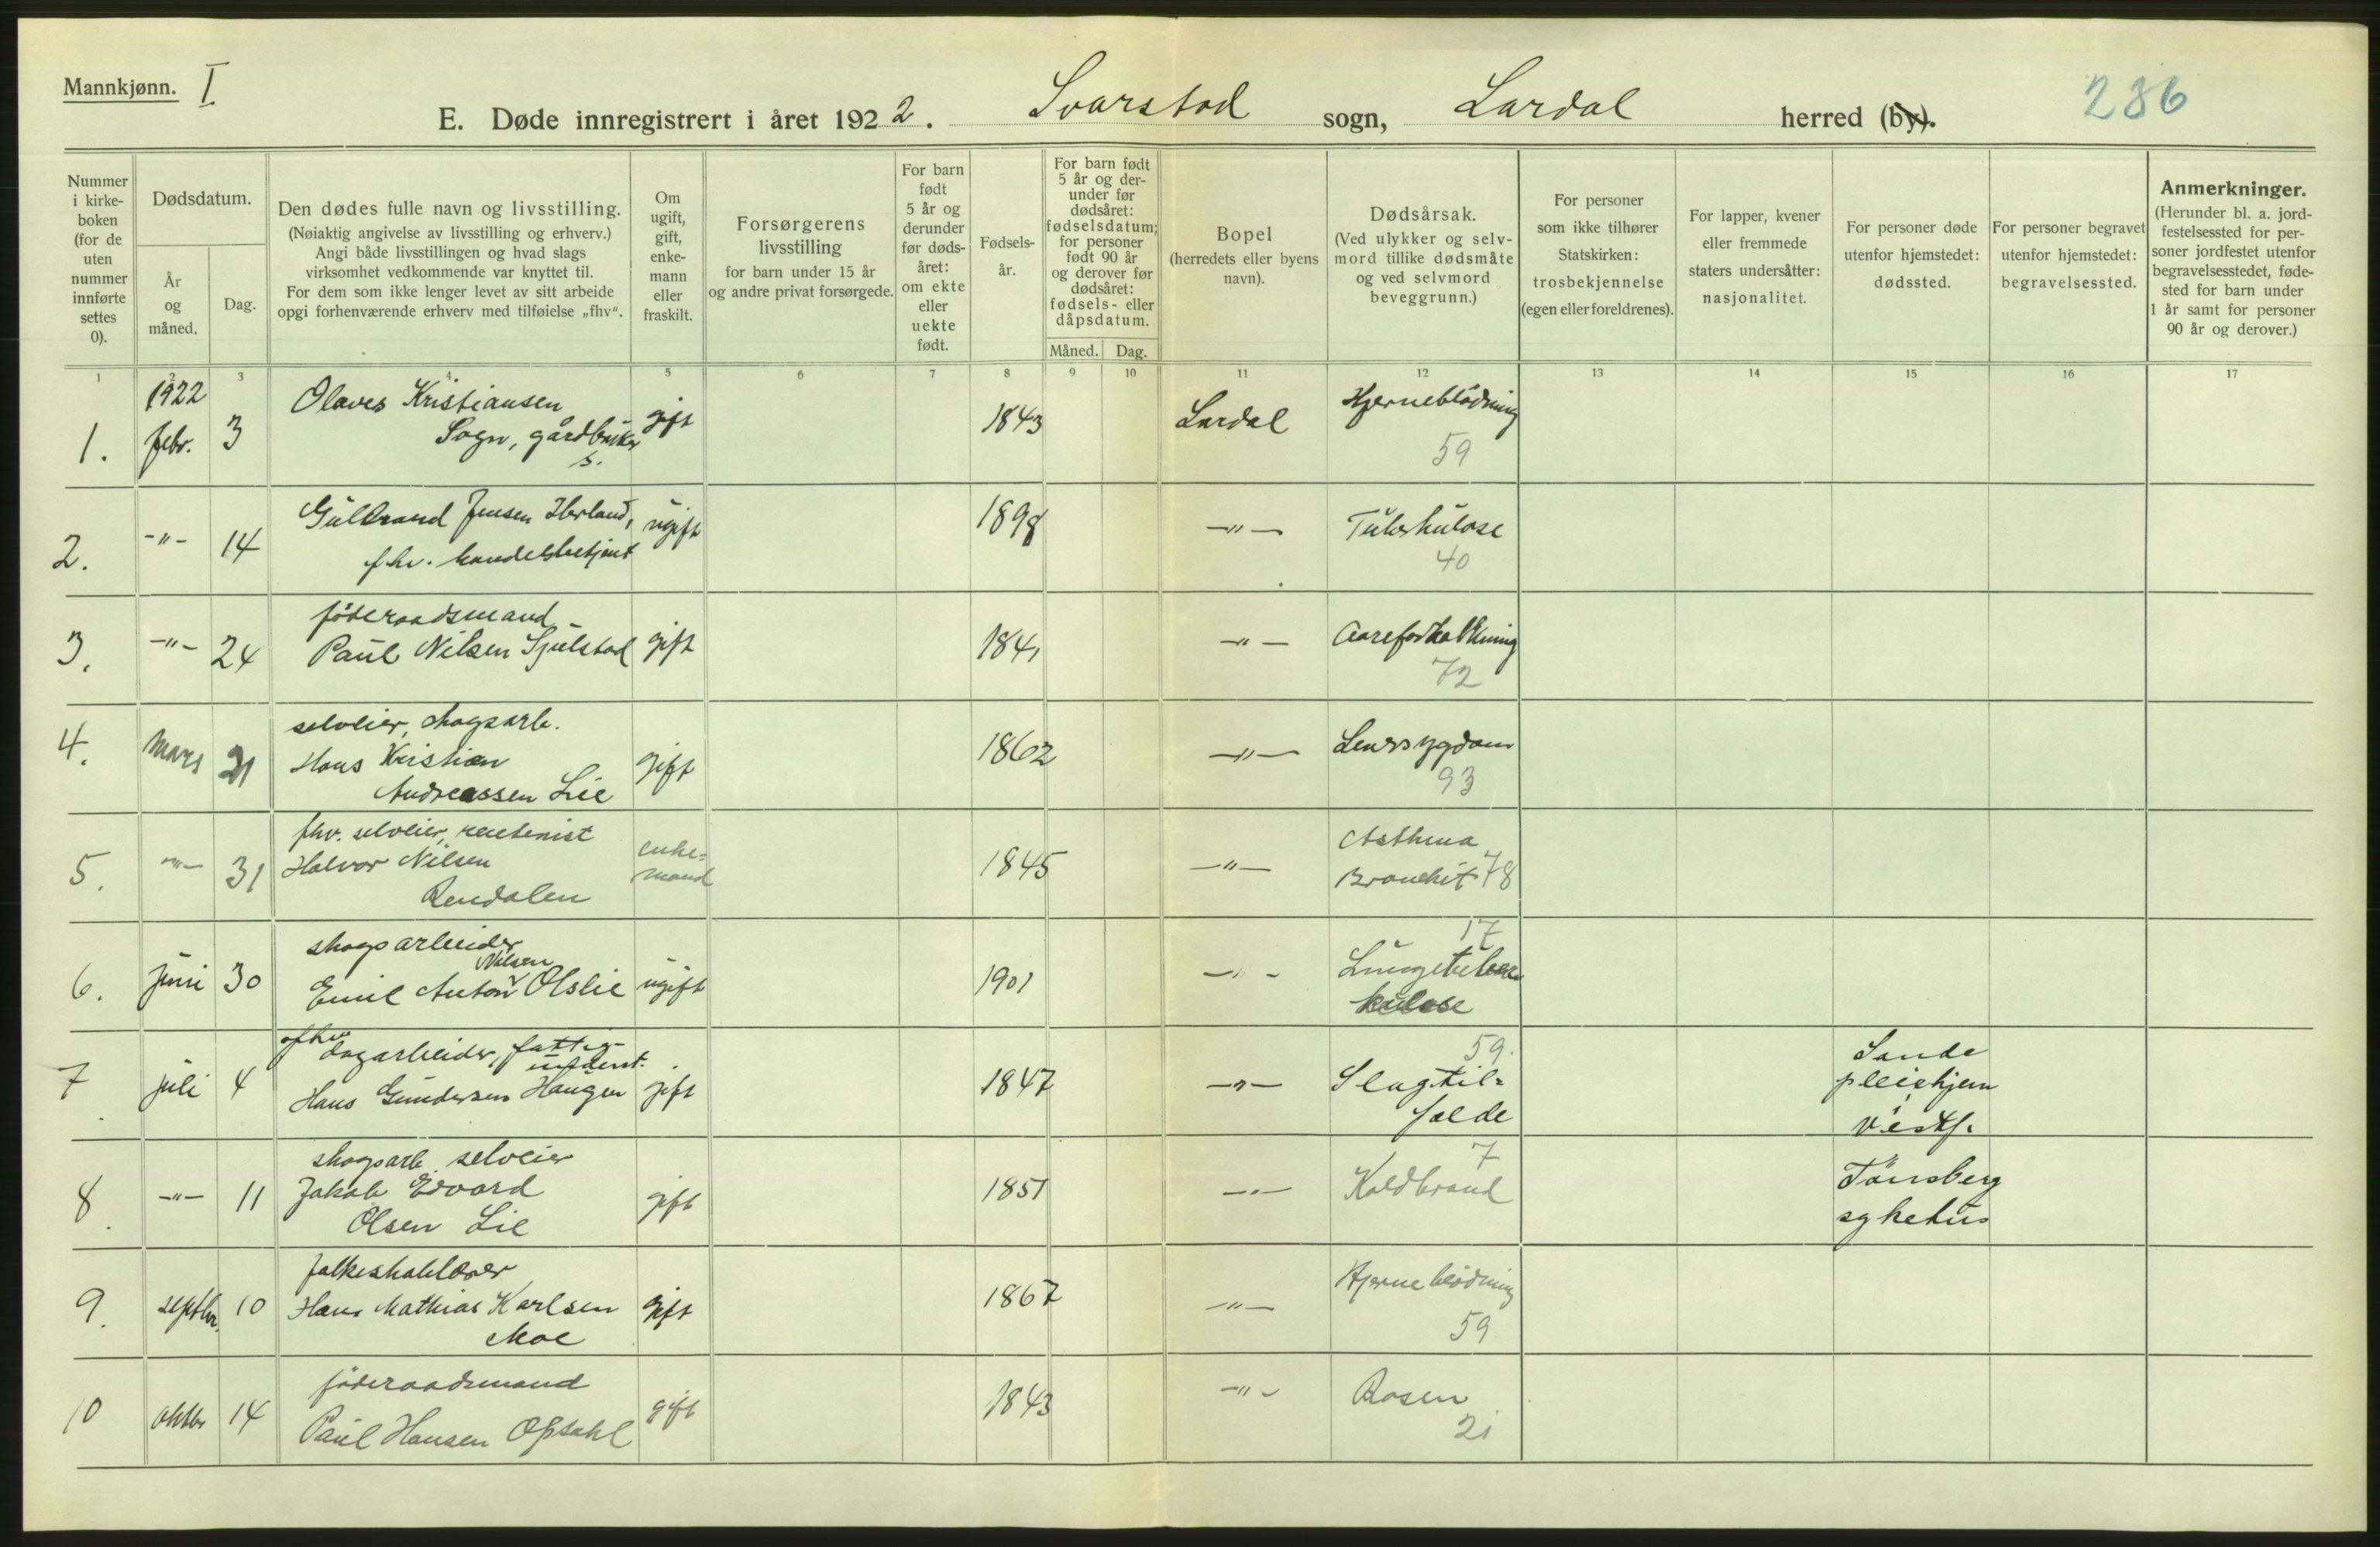 Mannkjønn. I
E. Døde innregistrert i året 1922. Svarstad sogn, Lardal herred (by).
236
Nummer i kirkeboken (for de uten nummer innførte settes 0).
Dødsdatum.
År og måned.
Dag.
Den dødes fulle navn og livsstilling.
(Nøiaktig angivelse av livsstilling og erhverv.)
Angi både livsstillingen og hvad slags
virksomhet vedkommende var knyttet til.
For dem som ikke lenger levet av sitt arbeide
opgi forhenværende erhverv med tilføielse „fhv“.
Om ugift, gift, enkemann eller fraskilt.
Forsørgerens livsstilling
for barn under 15 år
og andre privat forsørgede.
For barn født 5 år og derunder før dødsåret: om ekte eller uekte født.
Fødselsår.
For barn født 5 år og derunder før dødsåret: fødselsdatum; for personer født 90 år og derover før dødsåret: fødsels- eller dåpsdatum.
Måned. Dag.
Bopel
(herredets eller byens navn).
Dødsårsak.
(Ved ulykker og selvmord tillike dødsmåte og ved selvmord beveggrunn.)
For personer som ikke tilhører Statskirken: trosbekjennelse (egen eller foreldrenes).
For lapper, kvener eller fremmede staters undersåtter: nasjonalitet.
For personer døde utenfor hjemstedet: dødssted.
For personer begravet utenfor hjemstedet: begravelsessted.
Anmerkninger.
(Herunder bl. a. jordfestelsessted for personer jordfestet utenfor begravelsesstedet, fødested for barn under 1 år samt for personer 90 år og derover.)
1 2 3 4 5 6 7 8 9 10 11 12 13 14 15 16 17
1. 1922 febr. 3 Olaves Kristiansen Sogn, gårdbruker s. gift 1843 Lardal Hjerneblödning 59
2. -"- 14 Gulbrand Jensen Herland, fhv. handelsbetjent ugift 1898 -"- Tuberkulose 40
3. -"- 24 föderaadsmand Paul Nilsen Sjulstad gift 1841 -"- Aareforkalkning 72
4. mars 21 selveier, skogsarb. Hans Kristian Andreassen Lie gift 1862 -"- Leversygdom 93
5. -"- 31 fhv. selveier, rentenist Halvor Nilsen Rendalen enkemand 1845 -"- Asthma Bronchit 78
6. juni 30 skogsarbeider Emil Anton Nilsen Olslie ugift 1901 -"- 17 Lungetuberkulose
7. juli 4 fhv dagarbeider, fattigunderst. Hans Gundersen Haugen gift 1847 -"- 59. Slagtilfælde Sande pleiehjem Vestf.
8. -"- 11 skogsarb. selveier Jakob Edvard Olsen Lie gift 1851 -"- 7 Koldbrand Tönsberg sykehus
9. septbr. 10 folkeskolelærer Hans Mathias Karlsen Moe gift 1867 -"- Hjerneblödning 59
10 oktbr 14 föderaadsmand Paul Hansen Opsahl gift 1843 -"- Rosen 21